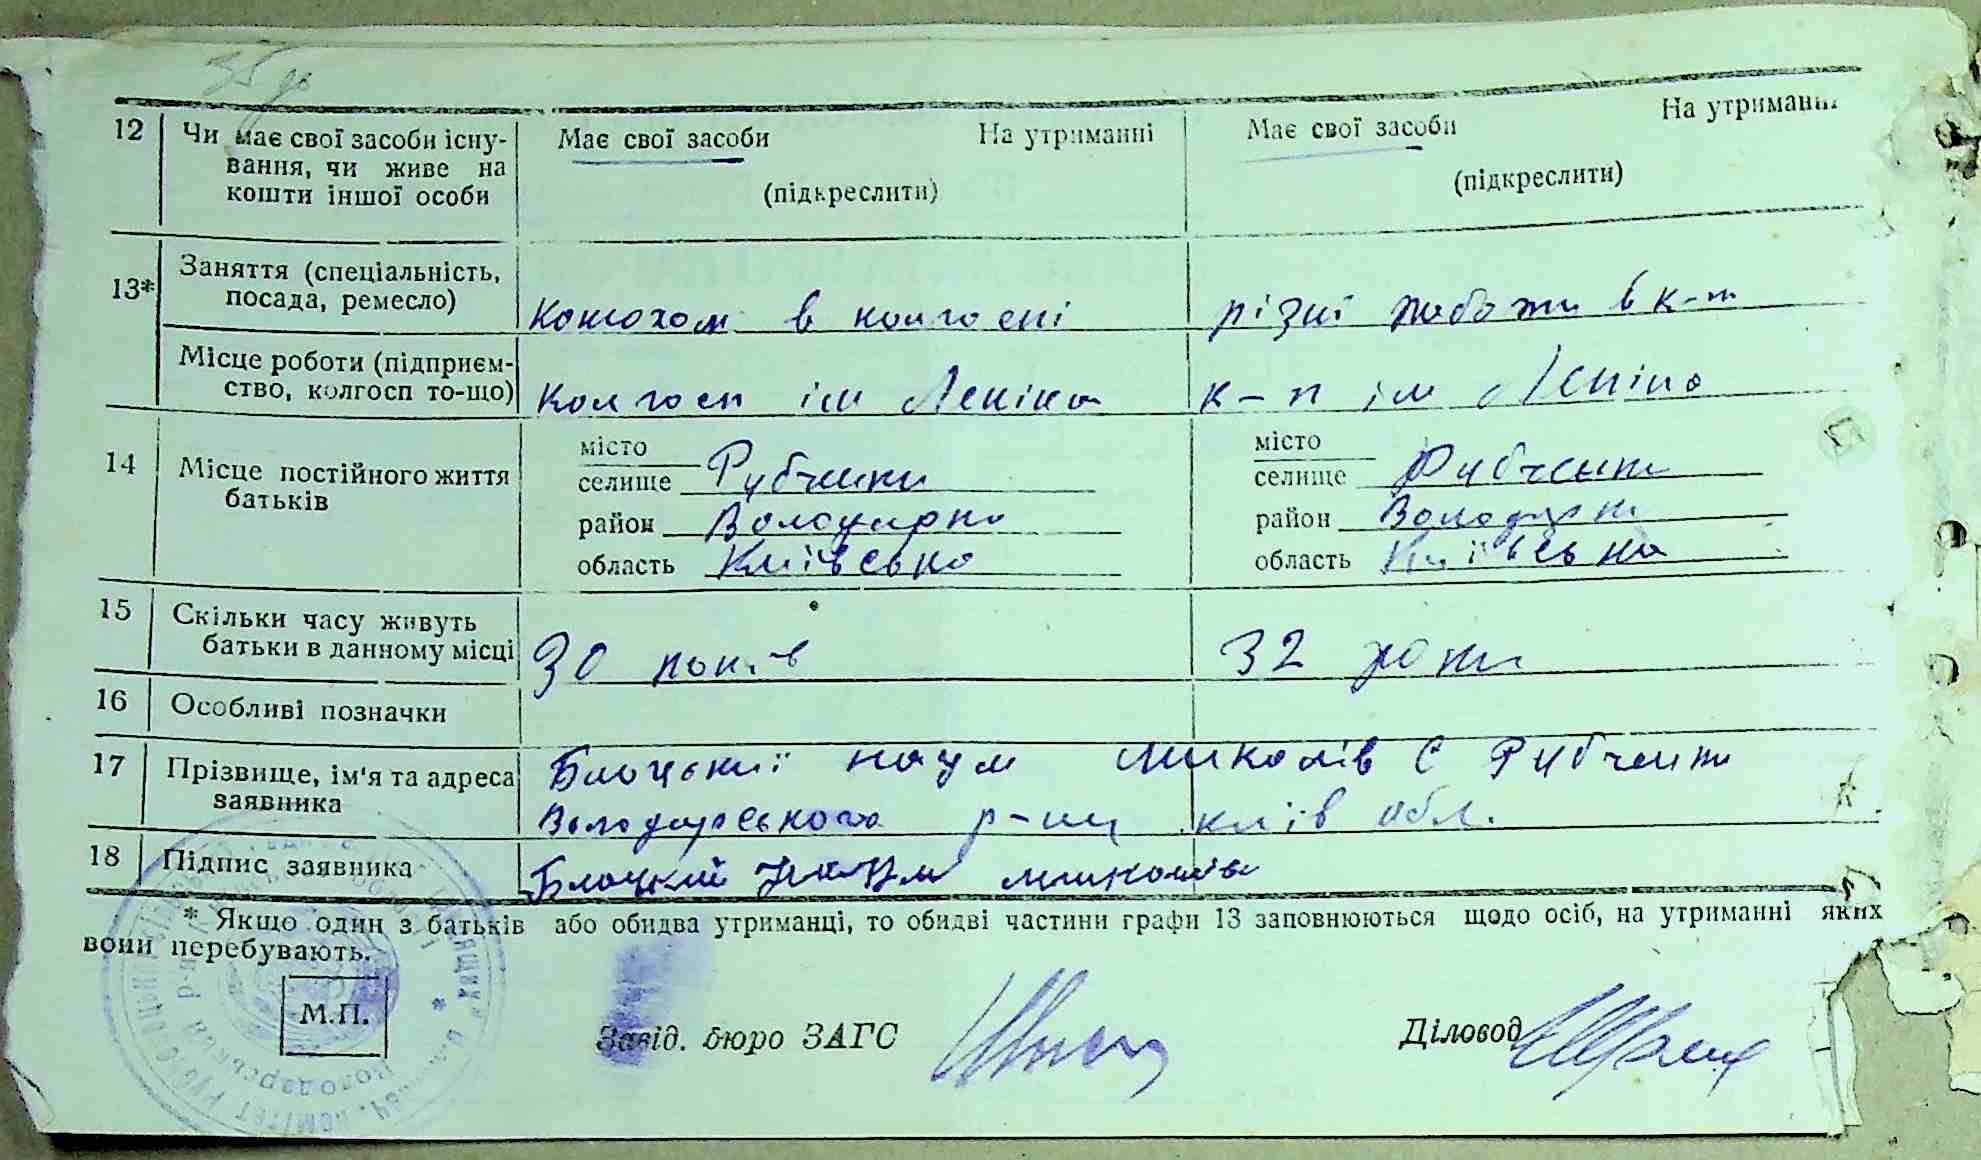 35
12 Чи має свої засоби існу- Має свої засоби На утриманні Має свої засоби На утриманні
вання, чи живе на
кошти іншої особи (підкреслити) (підкреслити)
13* Заняття (спеціальність,
посада, ремесло) Конюхом в колгоспі різні роботи в к-п
Місце роботи (підприєм-
ство, колгосп то-що) Колгосп ім Леніна к-п ім Леніна
14 Місце постійного життя
батьків
місто місто
селище Рубченки селище Рубченки
район Володарка район Володарка
область Київська область Київська
15 Скільки часу живуть
батьки в данному місці 30 років 32 роки
16 Особливі позначки
17 Прізвище, ім'я та адреса Блоцький наум миколаїв с Рубченки
заявника Володарського р-ну київ обл.
18 Підпис заявника Блоцкий Наум
* Якщо один з батьків або обидва утриманці, то обидві частини графи 13 заповнюються щодо осіб, на утриманні яких
вони перебувають.
М.П.
Завід. бюро ЗАГС Діловод